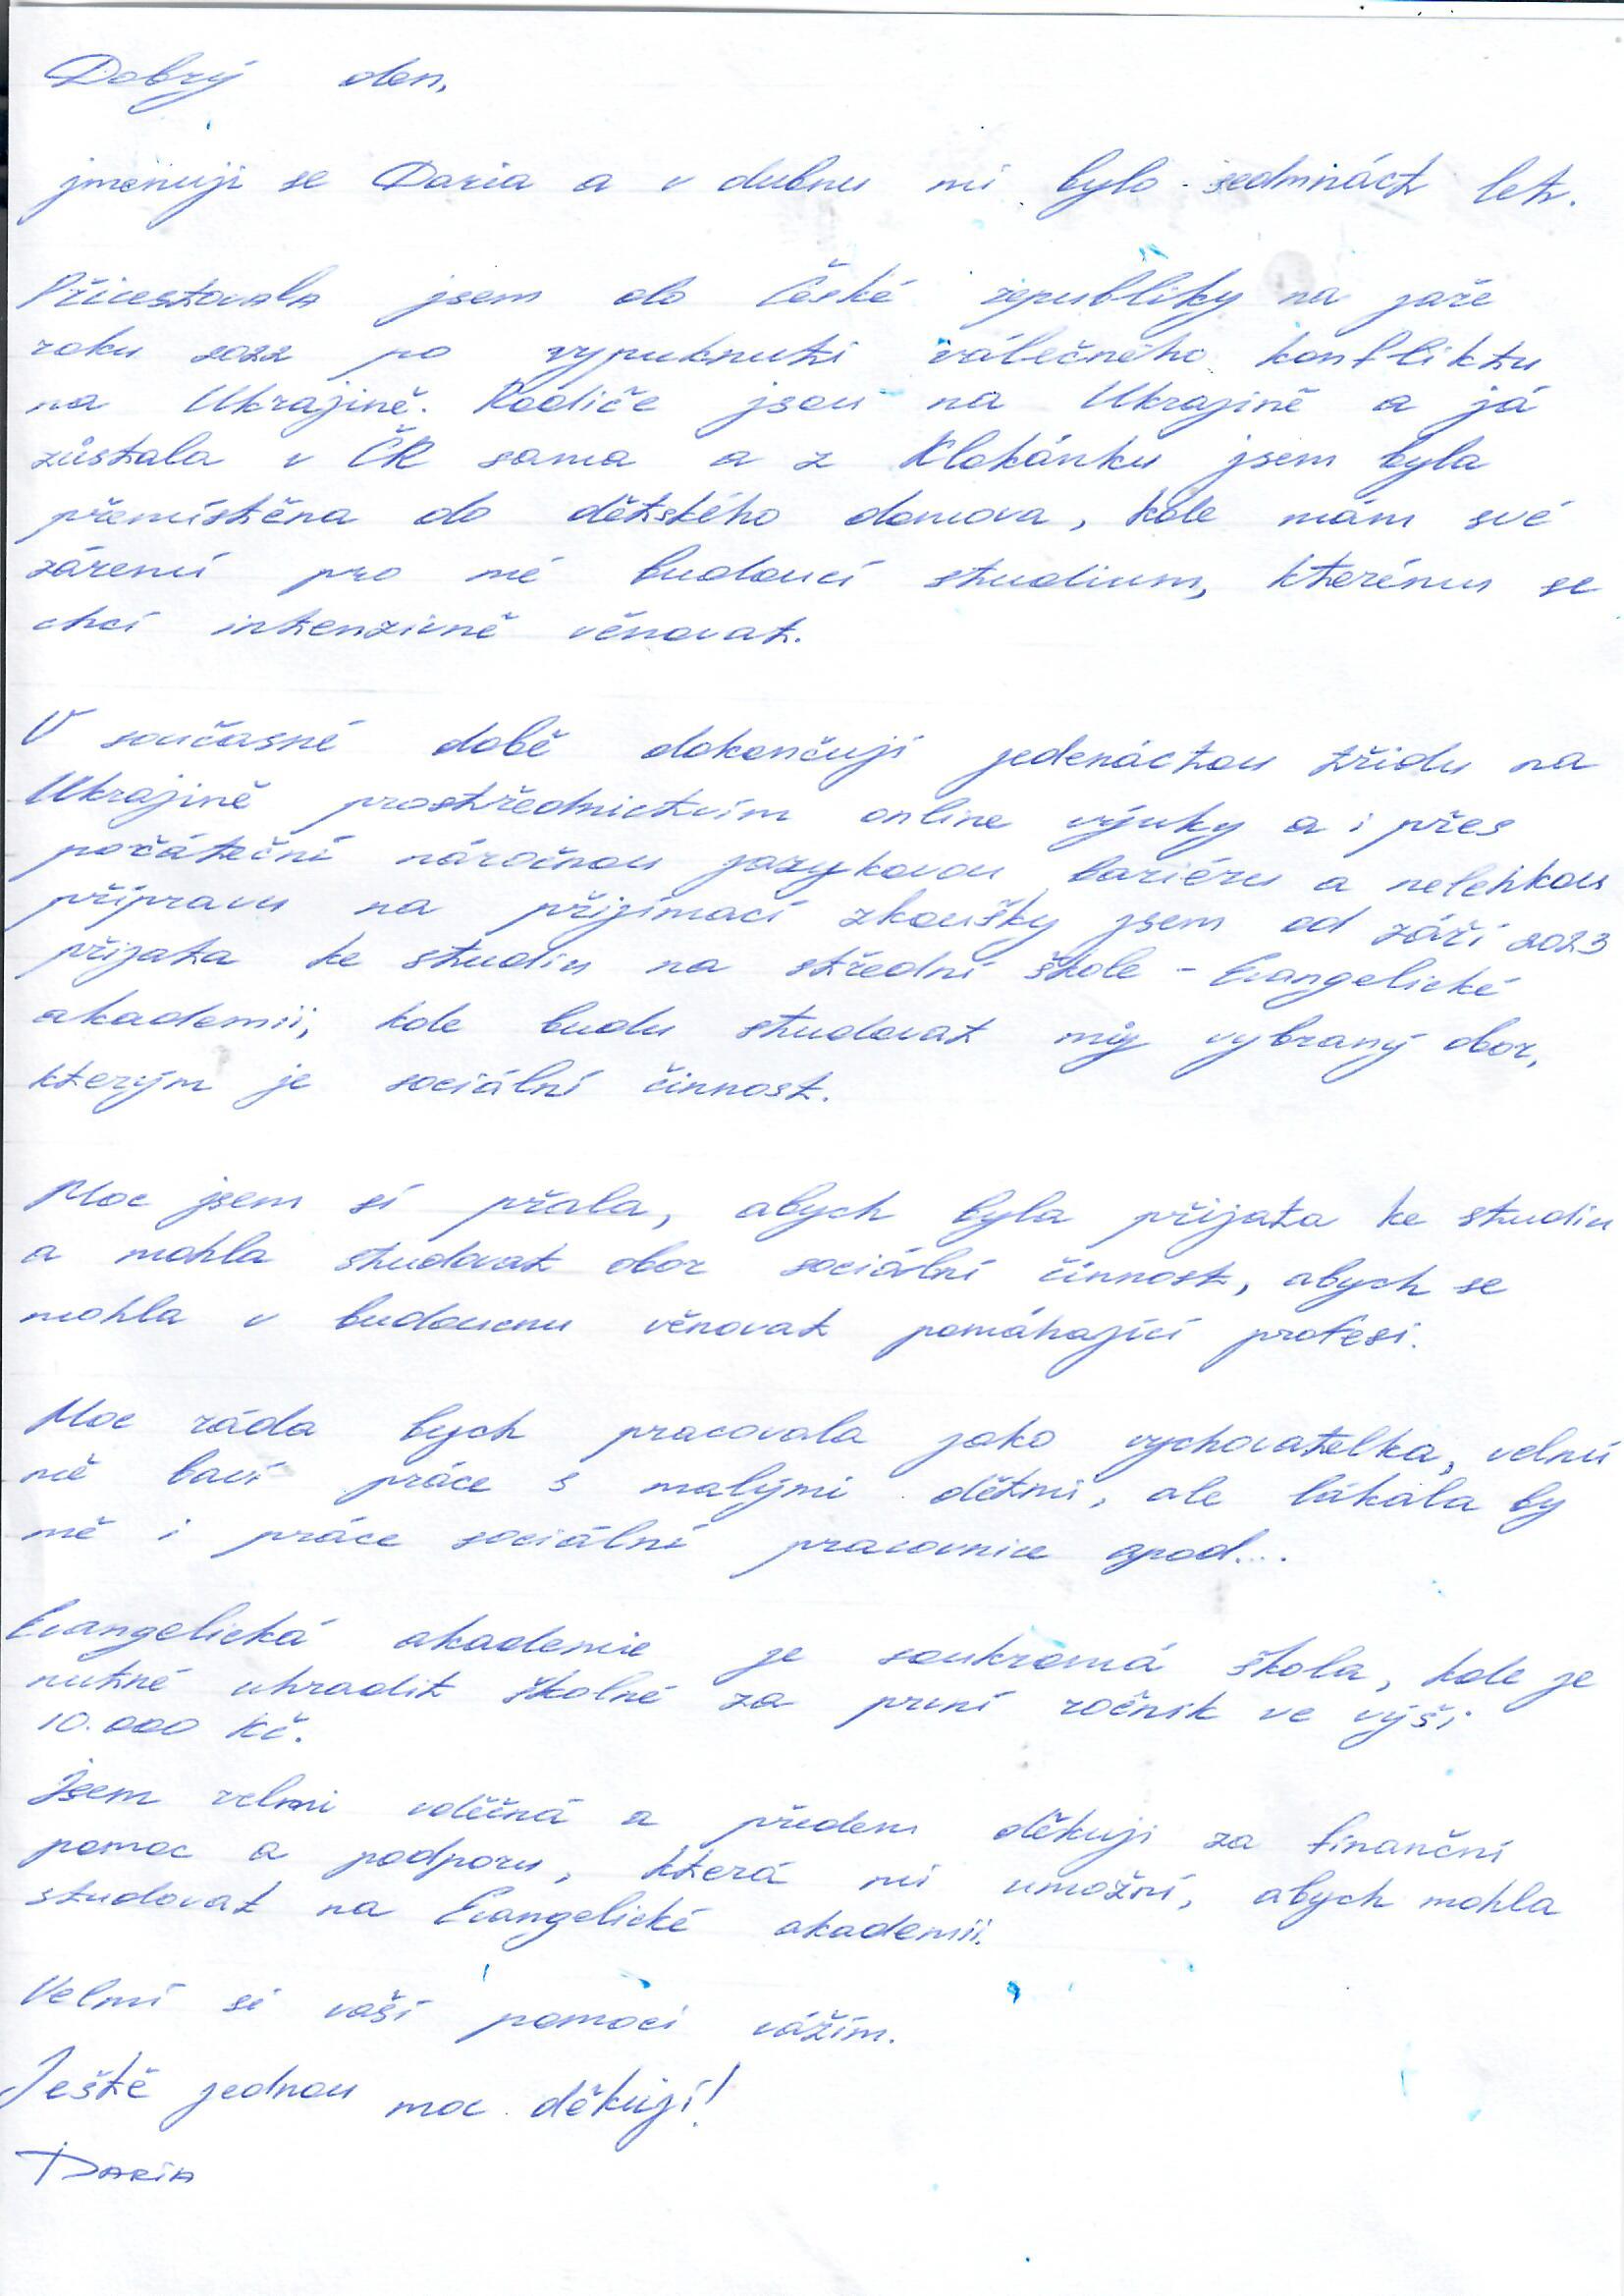 Dobrý den,
jmenuji se Daria a v dubnu mi bylo sedmnáct let.
Přicestovala jsem do České republiky na jaře
roku 2022 po vypuknutí válečného konfliktu
na Ukrajině. Rodiče jsou na Ukrajině a já
zůstala v ČR sama a z Klokánku jsem byla
přemístěna do dětského domova, kde mám své
zázemí pro mé budoucí studium, kterému se
chci intenzivně věnovat.
V současné době dokončuji jedenáctou třídu na
Ukrajině prostřednictvím online výuky a i přes
počáteční náročnou jazykovou bariéru a nelehkou
přípravu na přijímací zkoušky jsem od září 2023
přijata ke studiu na střední škole - Evangelické
akademii, kde budu studovat můj vybraný obor,
kterým je sociální činnost.
Moc jsem si přála, abych byla přijata ke studiu
a mohla studovat obor sociální činnost, abych se
mohla v budoucnu věnovat pomáhající profesi.
Moc ráda bych pracovala jako vychovatelka, velmi
mě baví práce s malými dětmi, ale lákala by
mě i práce sociální pracovnice apod...
Evangelická akademie je soukromá škola, kde je
nutné uhradit školné za první ročník ve výši
10.000 Kč.
Jsem velmi vděčná a předem děkuji za finanční
pomoc a podporu, která mi umožní, abych mohla
studovat na Evangelické akademii.
Velmi si vaší pomoci vážím.
Ještě jednou moc děkuji!
DARIA